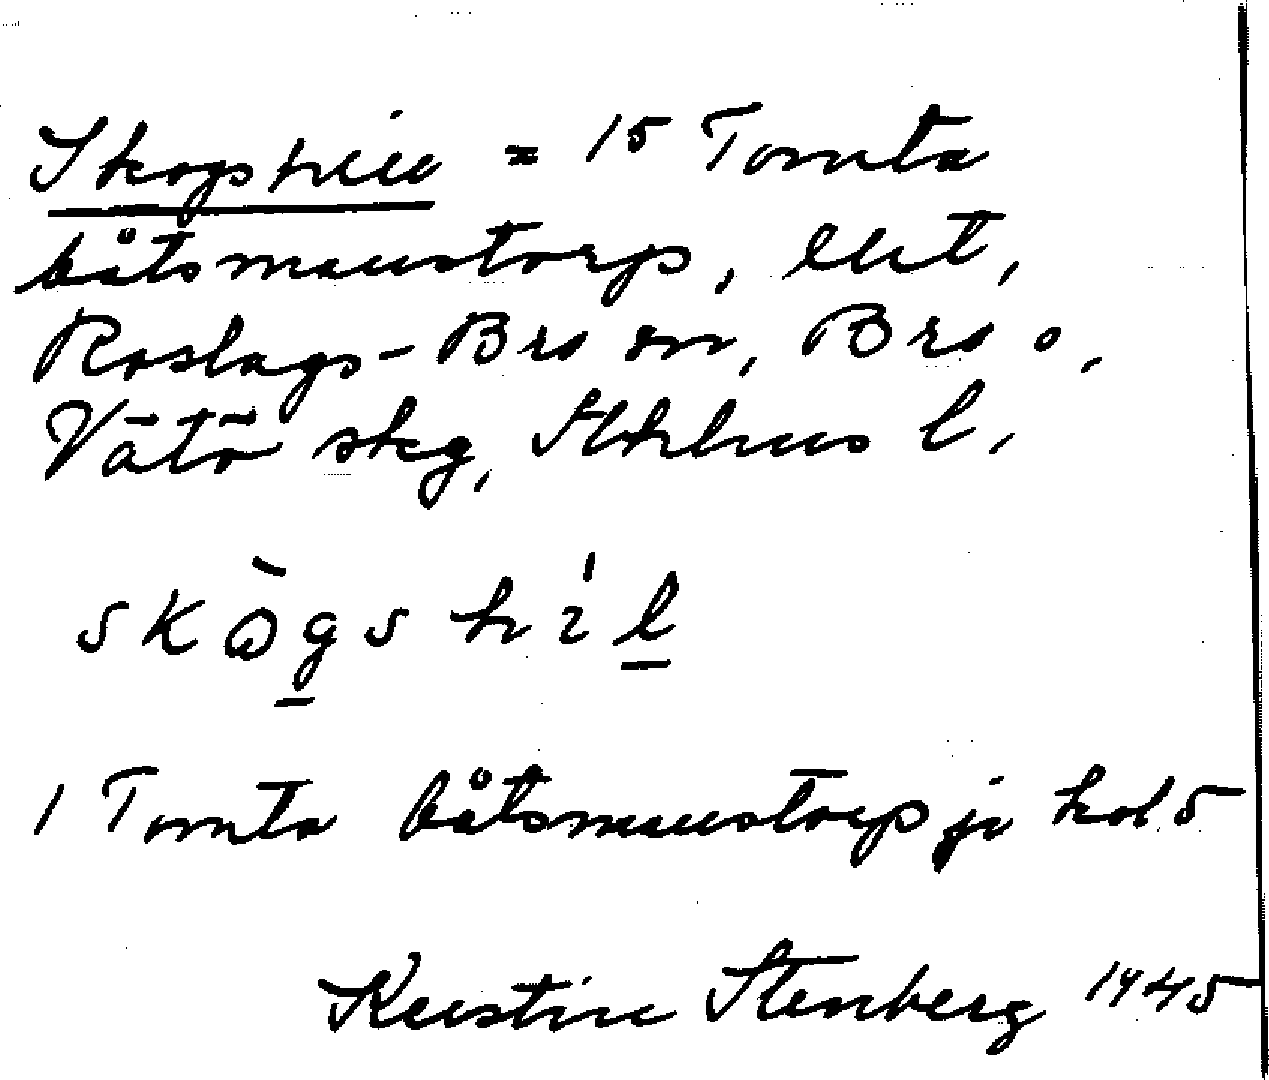 Skogshill = 15 Tomta
båtsmanstorp, ehl,
Roslags-Bro sn, Bro o,
Vätö skg, Sthlms l.
skògs hìl
1 Tomta båtsmanstorp jr kol 5
Kerstin Stenberg 1945